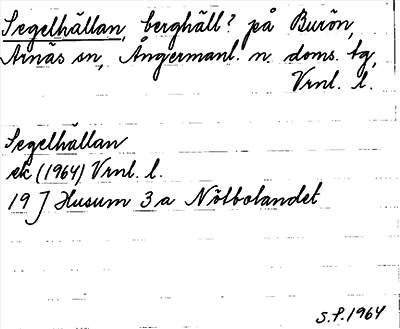 Segelhällan, berghäll? på Burön,
Arnäs sn, Ångermanl. n. doms. tg,
Vrnl. l.
Segelhällan
ek (1964) Vrnl. l.
19 J Husum 3 a Nötbolandet
S.F. 1964